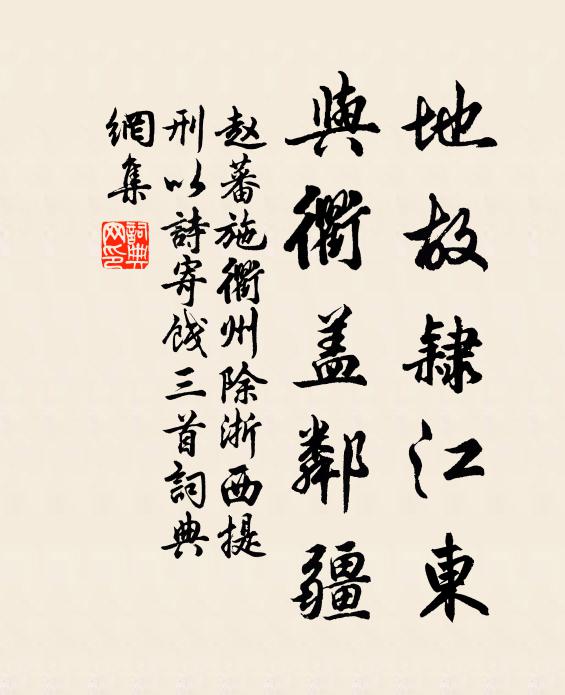 地故隸江東
與衢盖鄰疆
赵蕃施衢州除浙西提
刑以詩寄餞三首詞典
網集
詞典
网印